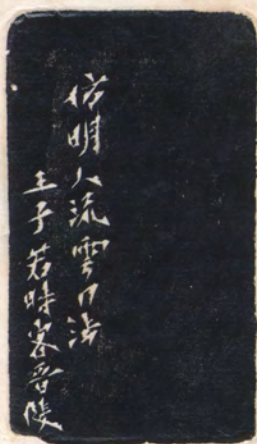 仿明人流雲刀法
王子若時客晉陵